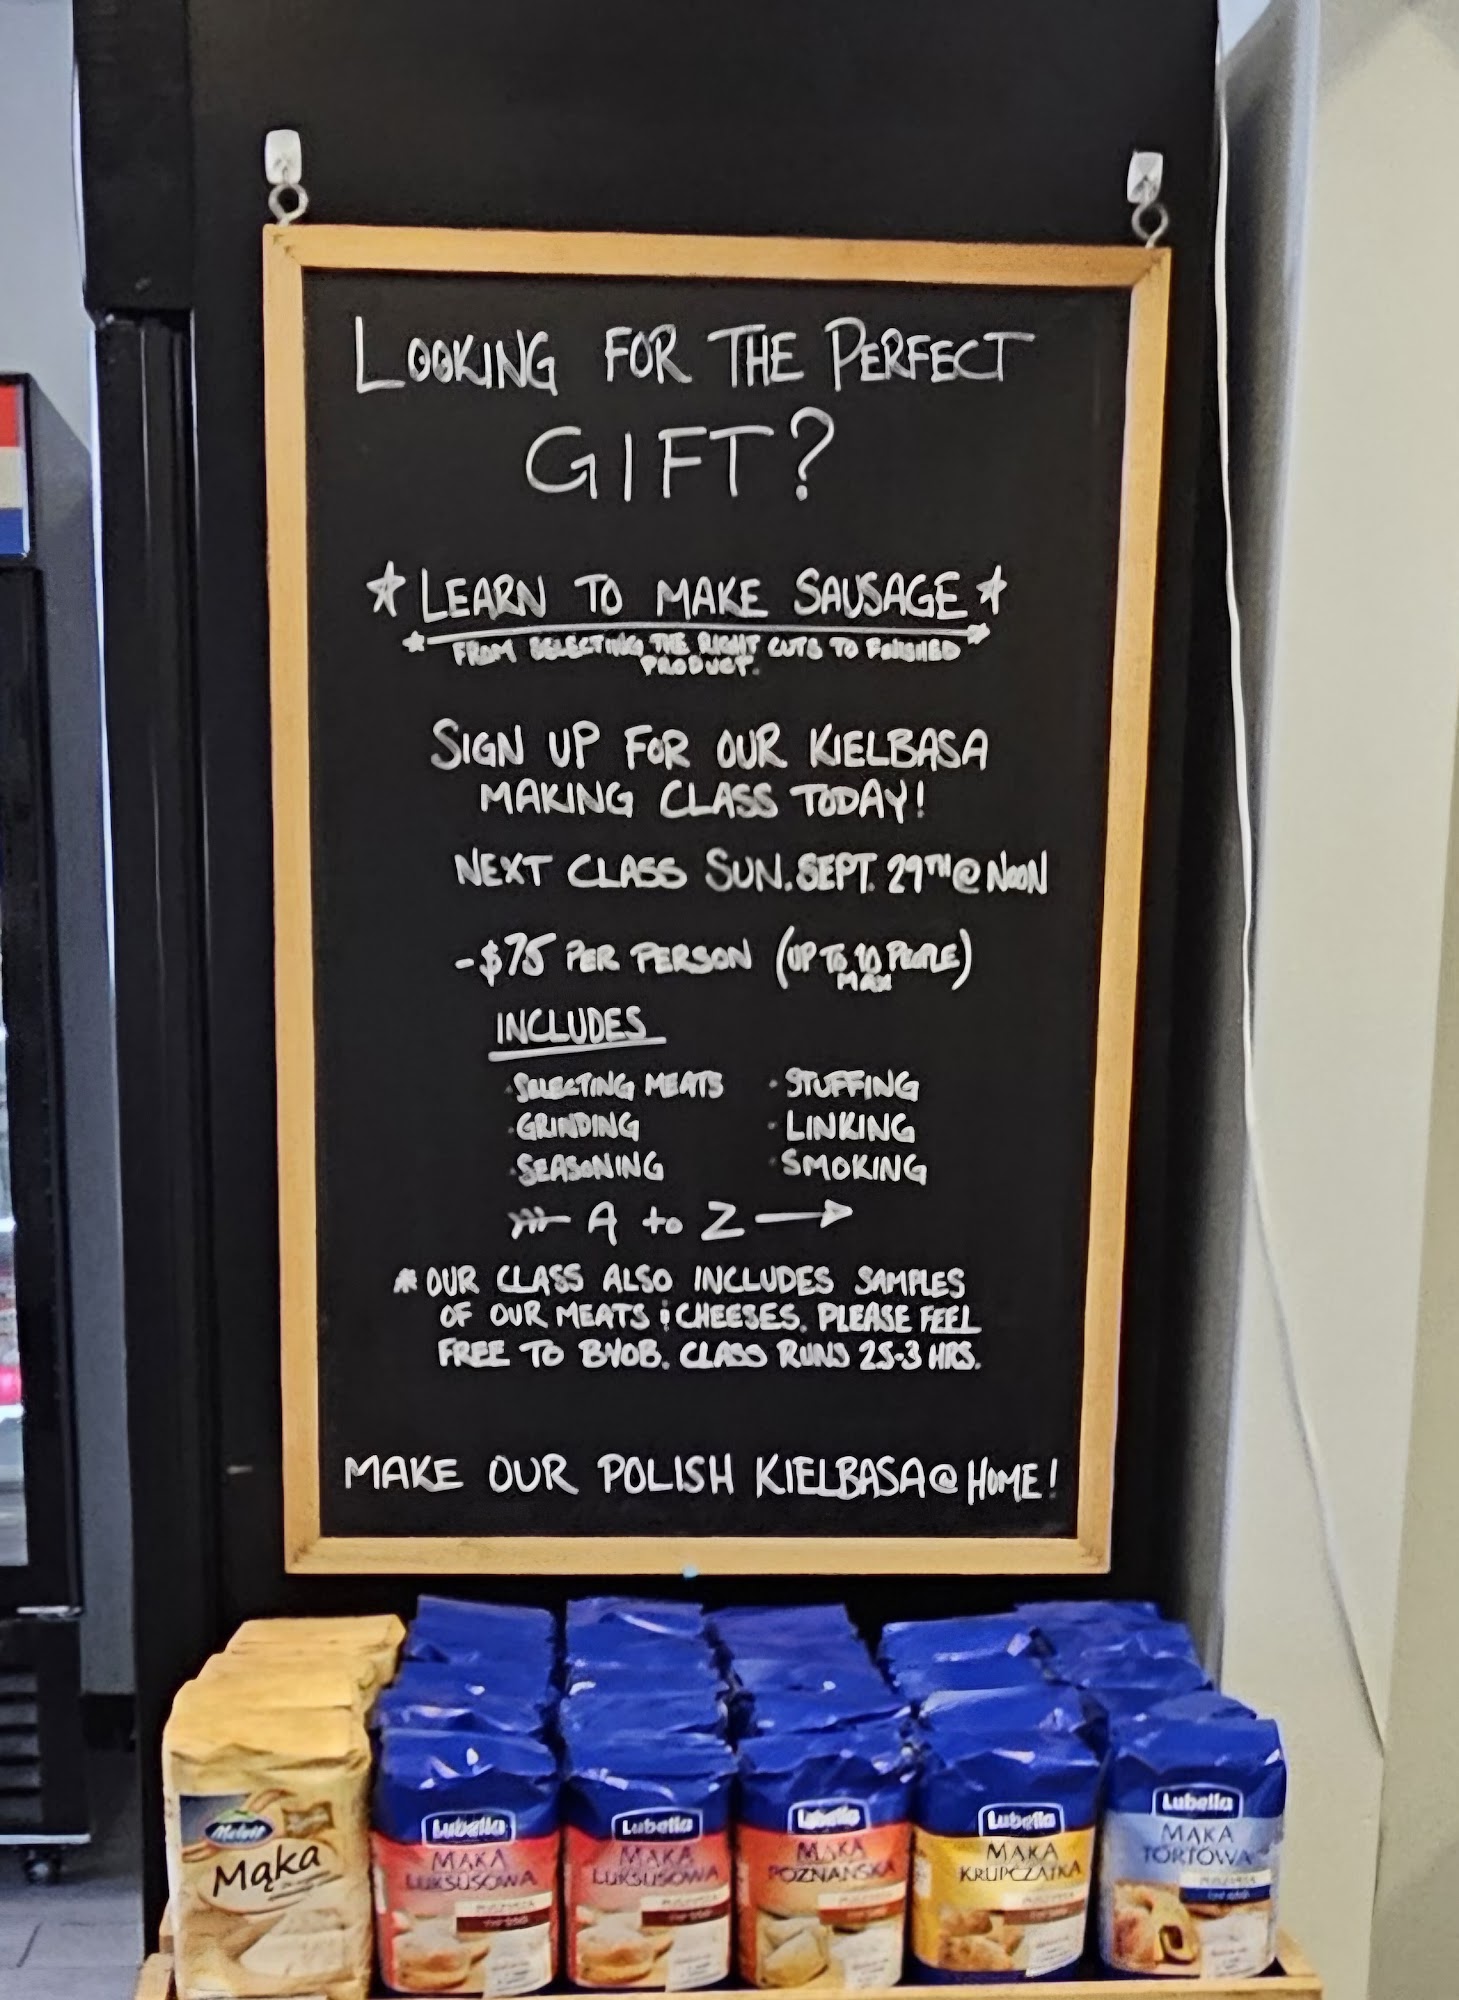 LOOKING FOR THE PERFECT
GIFT?
LEARN TO MAKE SAUSAGE
FROM SELECTING THE RIGHT CUTS TO FINISHED
PRODUCT.
SIGN UP FOR OUR KIELBASA
MAKING CLASS TODAY!
NEXT CLASS SUN. SEPT. 29TH @ NOON
- $75 PER PERSON (UP TO 10 PEOPLE)
MAX
INCLUDES
· SELECTING MEATS · STUFFING
· GRINDING · LINKING
· SEASONING · SMOKING
A to Z
* OUR CLASS ALSO INCLUDES SAMPLES
OF OUR MEATS & CHEESES. PLEASE FEEL
FREE TO BYOB. CLASS RUNS 2.5-3 HRS.
MAKE OUR POLISH KIELBASA @ HOME!
Melvit
Mąka
Lubella
MĄKA
LUKSUSOWA
Lubella
MĄKA
LUKSUSOWA
Lubella
MĄKA
POZNAŃSKA
Lubella
MĄKA
KRUPCZATKA
Lubella
MĄKA
TORTOWA